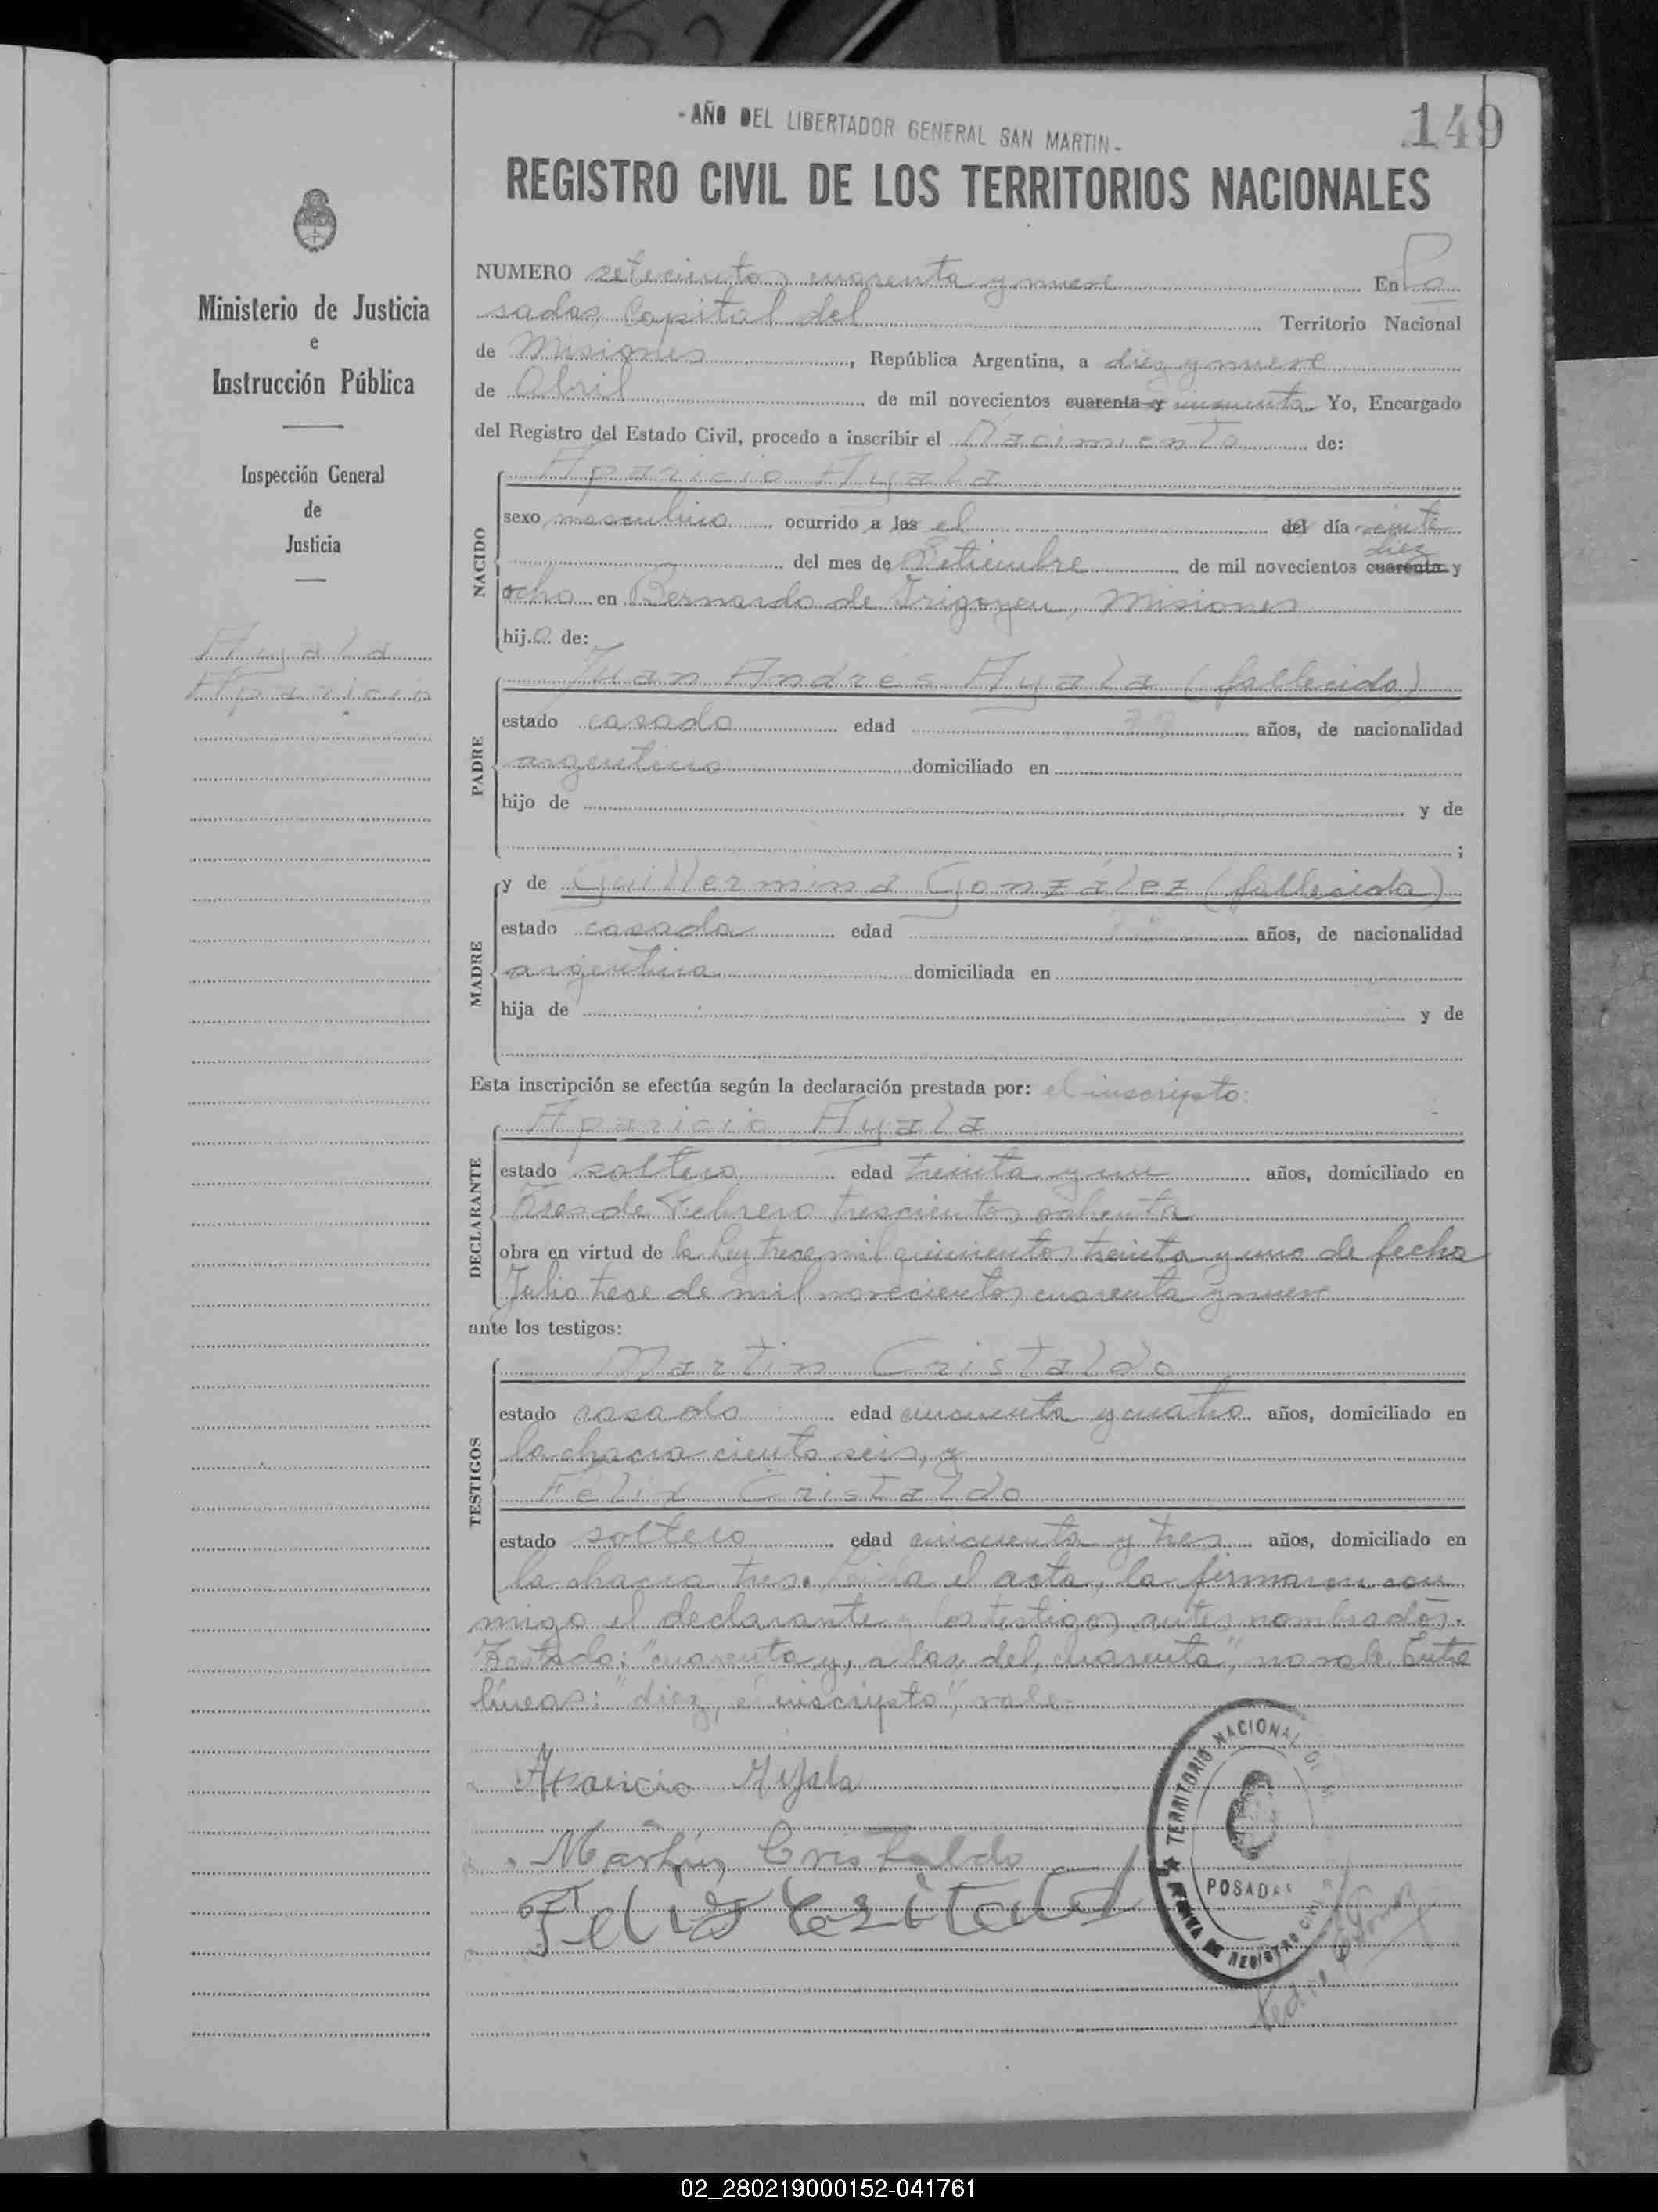 - AÑO DEL LIBERTADOR GENERAL SAN MARTIN -
149
REGISTRO CIVIL DE LOS TERRITORIOS NACIONALES
Ministerio de Justicia
e
Instrucción Pública
Inspección General
de
Justicia
Ayala
Aparicio
NUMERO setecientos cuarenta y nueve En Po
sadas Capital del Territorio Nacional
de Misiones, República Argentina, a diez y nueve
de Abril de mil novecientos cuarenta y cincuenta Yo, Encargado
del Registro del Estado Civil, procedo a inscribir el Nacimiento de:
NACIDO
Aparicio Ayala
sexo masculino ocurrido a las el del día veinte
del mes de Setiembre de mil novecientos cuarenta y
diez
ocho en Bernardo de Irigoyen, Misiones
hijo de:
PADRE
Juan Andrés Ayala (fallecido)
estado casado edad años, de nacionalidad
argentino domiciliado en
hijo de y de
;
MADRE
y de Guillermina González (fallecida)
estado casada edad años, de nacionalidad
argentina domiciliada en
hija de y de
Esta inscripción se efectúa según la declaración prestada por: el inscripto:
DECLARANTE
Aparicio Ayala
estado soltero edad treinta y un años, domiciliado en
Tres de Febrero trescientos ochenta
obra en virtud de la Ley trece mil quinientos treinta y uno de fecha
Julio trece de mil novecientos cuarenta y nueve
ante los testigos:
TESTIGOS
Martin Cristaldo
estado casado edad cincuenta y cuatro años, domiciliado en
la chacra ciento seis, y
Felix Cristaldo
estado soltero edad cincuenta y tres años, domiciliado en
la chacra tres. Leída el acta, la firmaron con
migo el declarante y los testigos antes nombrados.
Testado: "cuarenta y, a las, del, cuarenta", no vale. Entre
líneas: "diez, el inscripto", vale.-
Aparicio Ayala
Martin Cristaldo
Felix Cristaldo
TERRITORIO NACIONAL DE
POSADAS
DE REGISTRO CIVIL
02_280219000152-041761